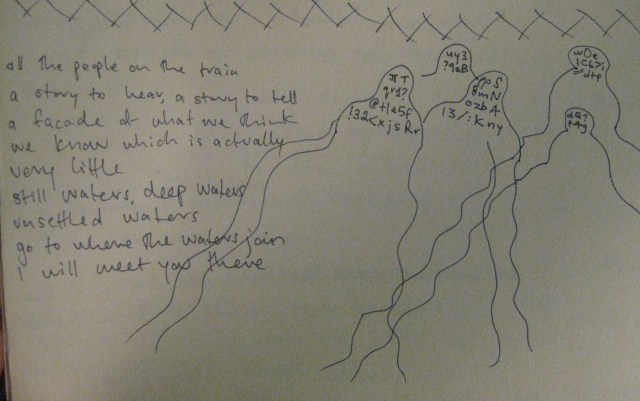 all the people on the train
a story to hear, a story to tell
a facade of what we think
we know which is actually
very little
still waters, deep waters
unsettled waters
go to where the waters join
I will meet you there
πT
qr1?
@+le5f
!32<xjsRr
uy3
?9aB
8mN
ozb4
13/:Kny
wOe